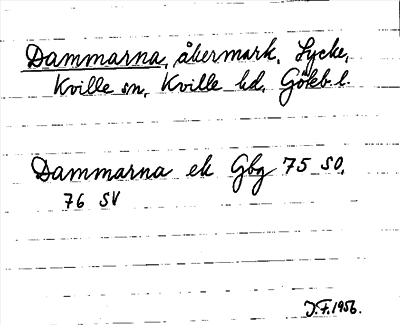 Dammarna, åkermark, Lycke,
Kville sn, Kville hd, Göteb. l.
Dammarna ek Gbg 75 SO,
76 SV
J.F. 1956.